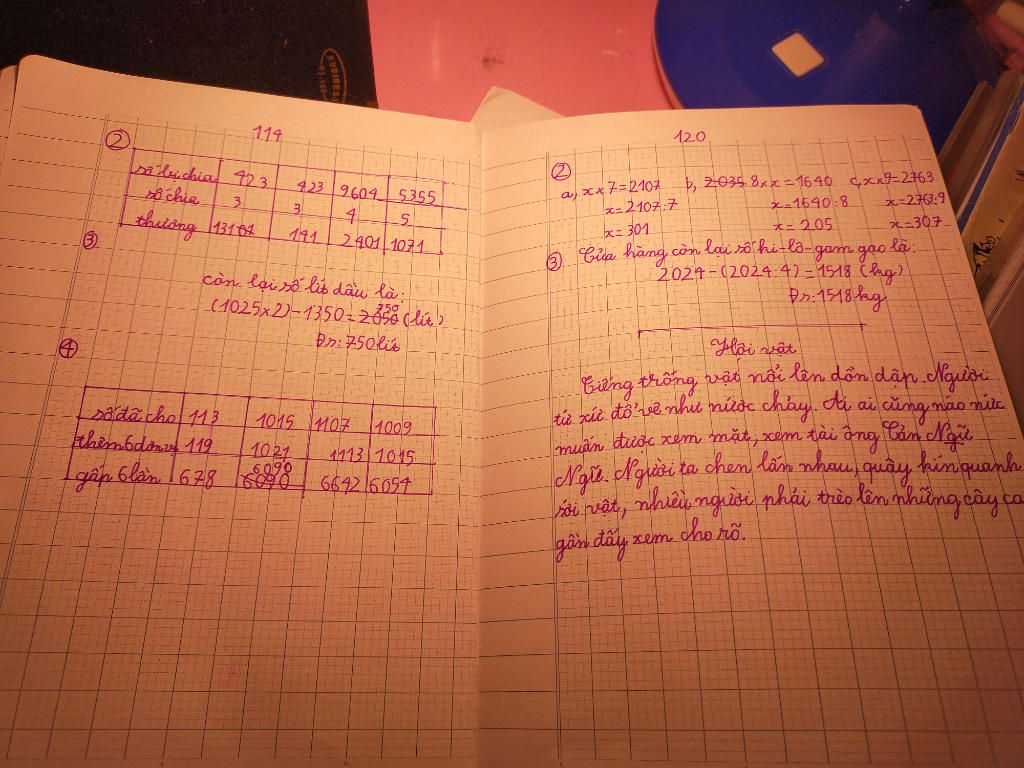 114
2
số bị chia 423 423 9604 5355
số chia 3 3 4 5
thương 141 2401 1071
3
còn lại số lít dầu là:
(1025x2)-1350= 750 (lít)
Đs: 750 lít
4
số đã cho 113 1015 1107 1009
thêm 6 đơn vị 119 1021 1113 1015
6090
gấp 6 lần 678 6090 6642 6054
120
2
a, x x 7 = 2107 b, 2035 8 x x = 1640 c, x x 9 = 2763
x = 2107:7 x = 1640:8 x = 2763:9
x = 301 x = 205 x = 307
3 Cửa hàng còn lại số ki-lô-gam gạo là:
2024-(2024:4)=1518 (kg)
Đs: 1518 kg
Hội vật
Tiếng trống vật nổi lên dồn dập. Người
tứ xứ đổ về như nước chảy. Ai ai cũng náo nức
muốn được xem mặt, xem tài ông Cản Ngũ
Ngũ. Người ta chen lấn nhau, quây kín quanh
sới vật, nhiều người phải trèo lên những cây ca
gần đấy xem cho rõ.